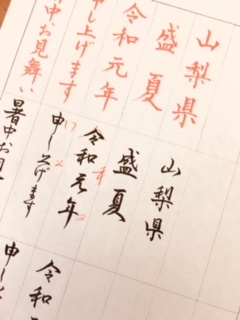 山梨県
盛夏
令和元年
申し上げます
暑中お見舞い
山梨県
盛夏
令和元年
申し上げます
暑中お見
令和
申し